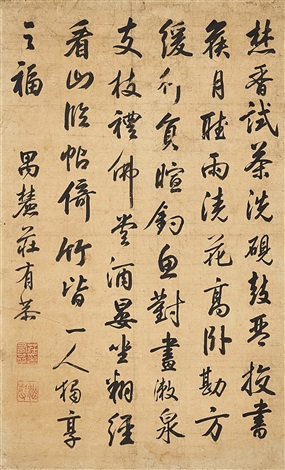 焚香試茶洗硯鼓琴挍書
候月聽雨澆花高臥勘方
緩行負暄釣魚對畫漱泉
支杖禮佛嘗酒晏坐翻經
看山臨帖倚竹皆一人獨享
之福
禺麓莊有恭